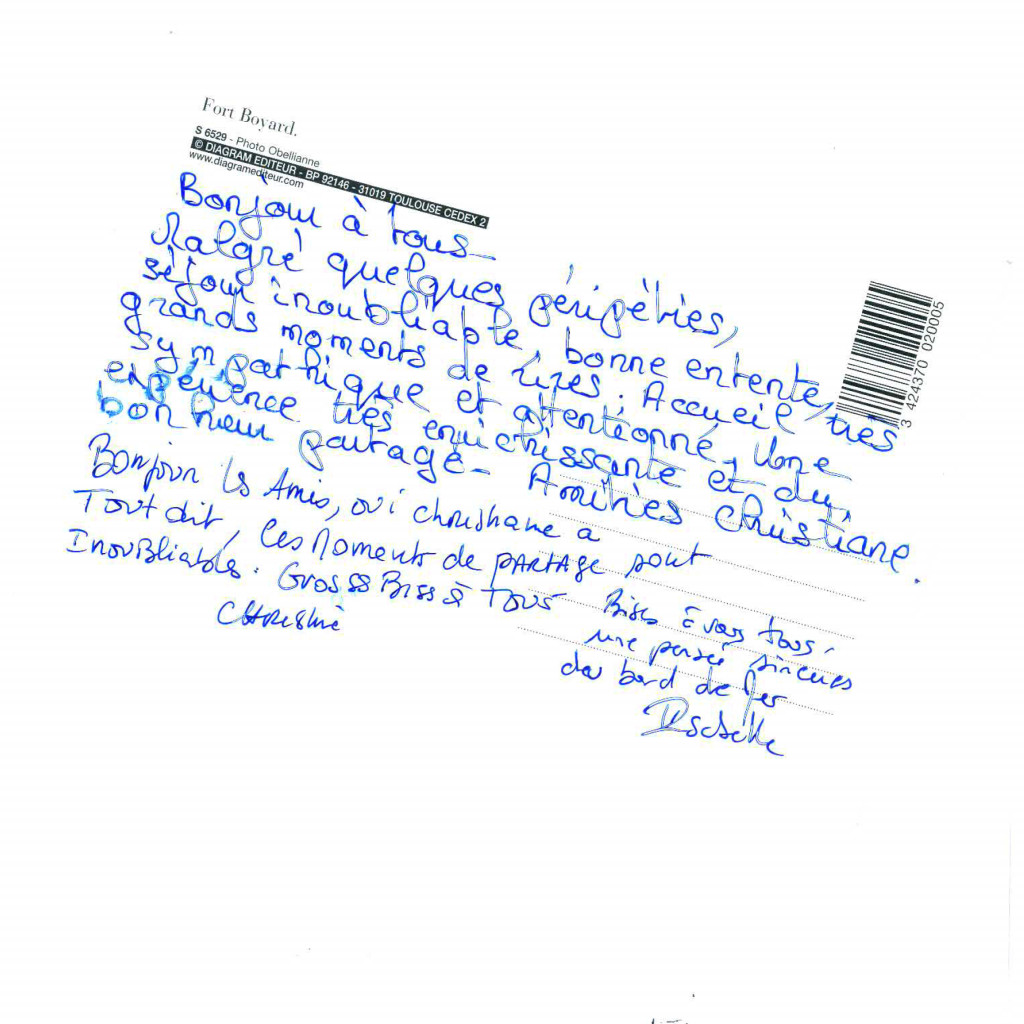 Fort Boyard.
S 6529 - Photo Obellianne
© DIAGRAM EDITEUR - BP 92146 - 31019 TOULOUSE CEDEX 2
www.diagramediteur.com
Bonjour à tous -
Malgré quelques péripéties,
séjour inoubliable, bonne entente,
grands moments de rires. Accueil, très
sympathique et attentionné, Une
expérience très enrichissante et du
bonheur partagé - Amitiés Christiane.
Bonjour les Amis, oui christiane a
Tout dit, Ces Moments de PARTAGE sont
InouBliables. Gross Biss à Tous
CHRISTINE
Bises à vous tous,
une pensée sincères
du bord de Mer
Isabelle
3 424370 020005